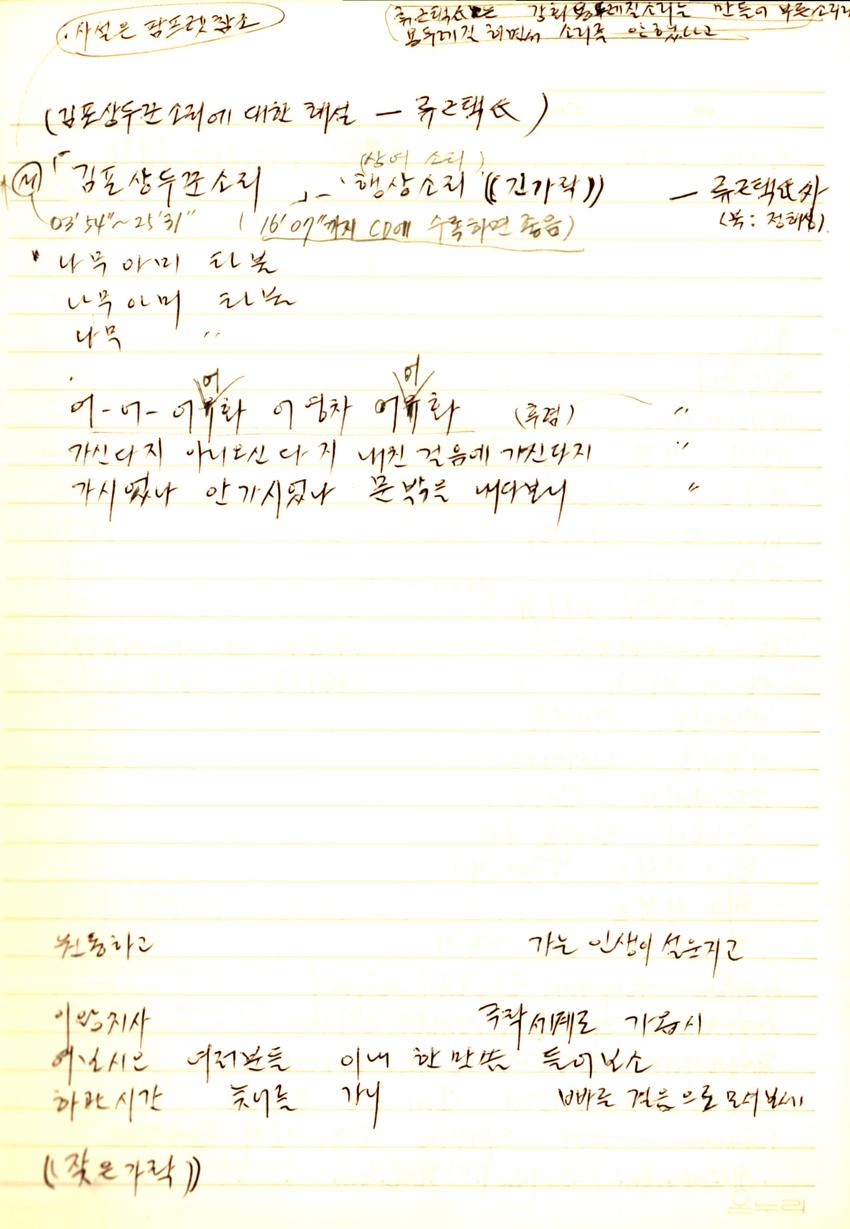 · 사설은 팜프렛 참조
류근택氏는 강화 용두레질소리는 만들어 부른 소리라
용두레질 하면서 소리를 안했다고
(김포상두꾼소리에 대한 해설 — 류근택氏)
(상여 소리)
「김포상두꾼소리」 - 행상소리 ((긴가락)) — 류근택氏外
03'54"~25'31" (16'07"까지 CD에 수록하면 좋음) (북: 정해성)
나무아미 타불
나무아미 타불
나무 〃
어 어
어-너- 어 화 어영차 어 화 (후렴) 〃
가신다지 아니오신다지 내친 걸음에 가신다지 〃
가시었나 안가시었나 문밖을 내다보니 〃
원통하고 가는 인생이 설운지고
이왕지사 극락세계로 가옵시
여보시오 여러분들 이내 한 말씀 들어보소
하관시간 늦어를 가니 빠른 걸음으로 모셔보세
((잦은가락))
온누리